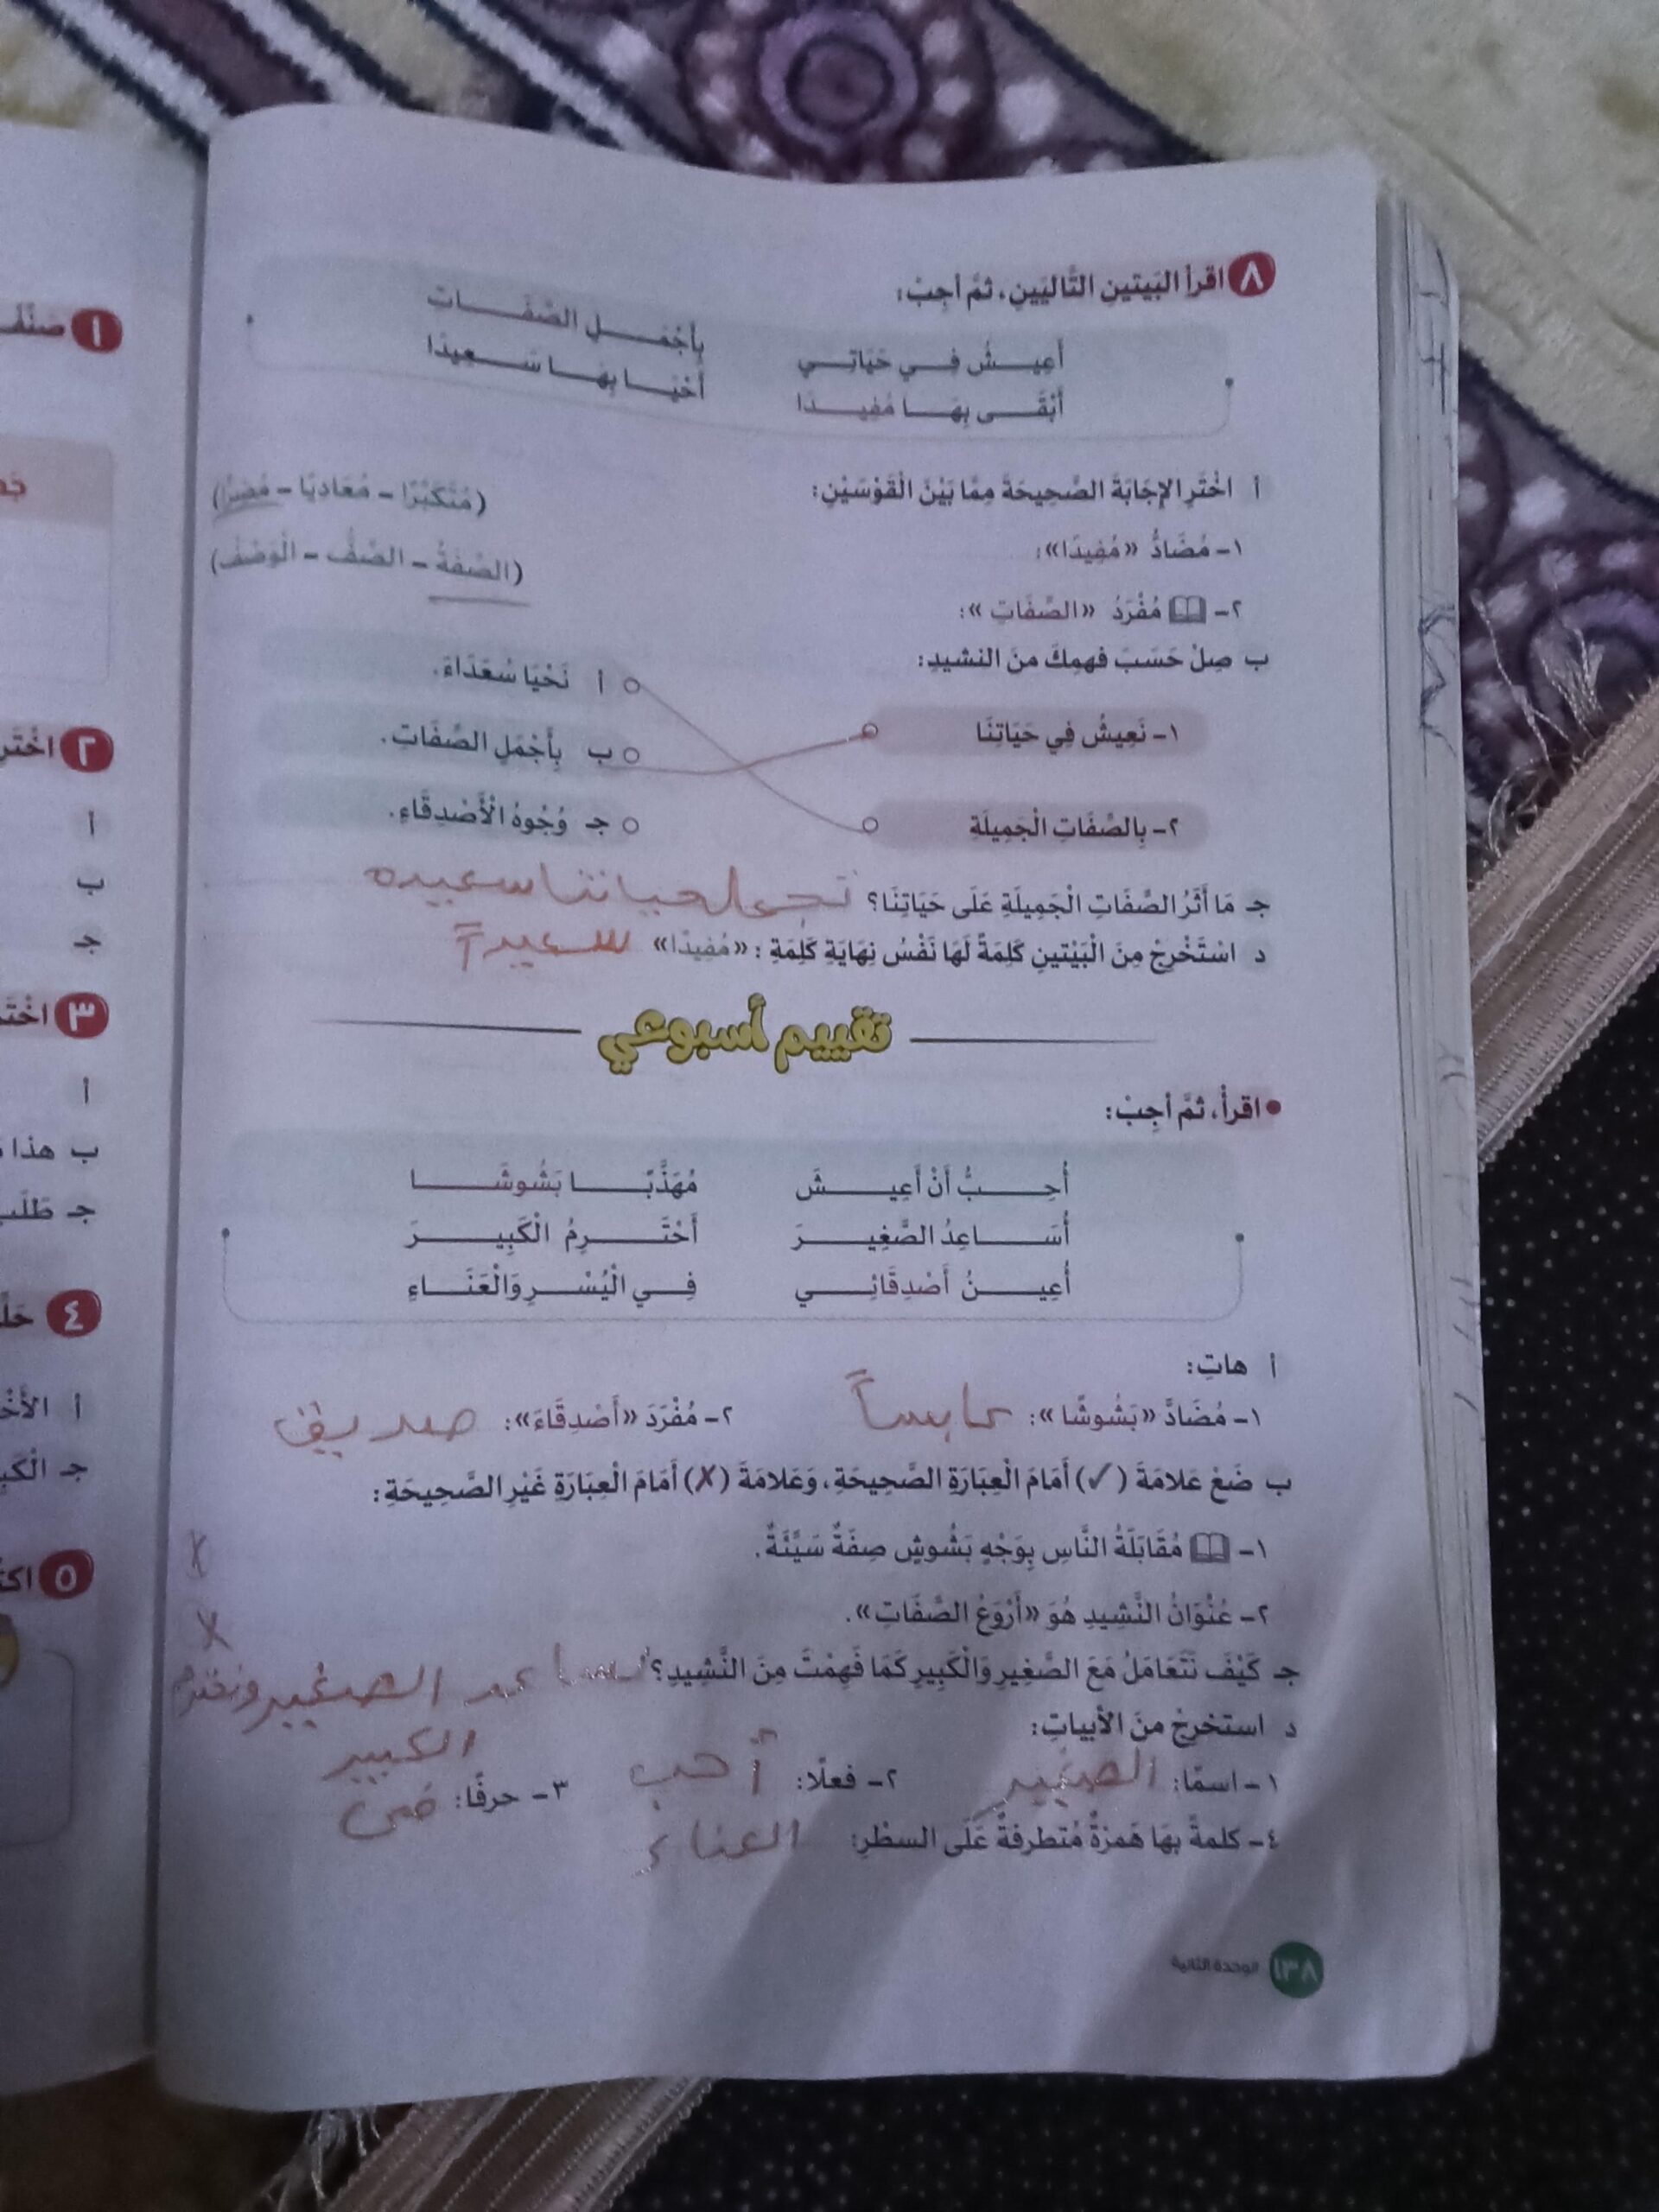 ٨ اقرأ البَيتينِ التَّاليَينِ، ثمَّ أجِبْ:
أَعِيـــشُ فـــي حَيَاتِـــي بِأَجْمَـــلِ الصِّفَـــاتِ
أَبْقَـــى بِهَـــا مُفِيـــدًا أَحْيَـــا بِهَـــا سَـــعِيدًا
أ اخْتَرِ الإِجَابَةَ الصَّحِيحَةَ مِمَّا بَيْنَ الْقَوْسَيْنِ:
١- مُضَادُّ «مُفِيدًا»: (مُتَكَبِّرًا - مُعَادِيًا - مُضِرًّا)
٢- مُفْرَدُ «الصِّفَاتِ»: (الصِّفَةُ - الصَّفُّ - الْوَصْفُ)
ب صِلْ حَسَبَ فهمِكَ منَ النشيدِ:
١- نَعِيشُ فِي حَيَاتِنَا
٢- بِالصِّفَاتِ الْجَمِيلَةِ
أ نَحْيَا سُعَدَاءَ.
ب بِأَجْمَلِ الصِّفَاتِ.
جـ وُجُوهُ الْأَصْدِقَاءِ.
جـ مَا أَثَرُ الصِّفَاتِ الْجَمِيلَةِ عَلَى حَيَاتِنَا؟ تجعل حياتنا سعيده
د اسْتَخْرِجْ مِنَ الْبَيْتَينِ كَلِمَةً لَهَا نَفْسُ نِهَايَةِ كَلِمَةِ: «مُفِيدًا» سعيداً
تقييم أسبوعي
• اقرأْ، ثمَّ أجِبْ:
أُحِـــبُّ أَنْ أَعِيـــشَ مُهَذَّبًـــا بَشُوشَـــا
أُسَـــاعِدُ الصَّغِيـــرَ أَحْتَـــرِمُ الْكَبِيـــرَ
أُعِيـــنُ أَصْدِقَائِـــي فِـــي الْيُسْـــرِ وَالْعَنَـــاءِ
أ هاتِ:
١- مُضَادَّ «بَشُوشًا»: عابساً ٢- مُفْرَدَ «أَصْدِقَاءَ»: صديق
ب ضَعْ عَلامَةَ (✓) أَمَامَ الْعِبَارَةِ الصَّحِيحَةِ، وَعَلامَةَ (✗) أَمَامَ الْعِبَارَةِ غَيْرِ الصَّحِيحَةِ:
١- مُقَابَلَةُ النَّاسِ بِوَجْهٍ بَشُوشٍ صِفَةٌ سَيِّئَةٌ. X
٢- عُنْوَانُ النَّشِيدِ هُوَ «أَرْوَعُ الصِّفَاتِ». X
جـ كَيْفَ نَتَعَامَلُ مَعَ الصَّغِيرِ وَالْكَبِيرِ كَمَا فَهِمْتَ مِنَ النَّشِيدِ؟ نساعد الصغير ونحترم
الكبير
د استخرجْ منَ الأبياتِ:
١- اسمًا: الصغير ٢- فعلًا: أحب ٣- حرفًا: في
٤- كلمةً بهَا هَمزةٌ مُتطرفةٌ عَلَى السطْرِ: العناء
١٣٨ الوحدة الثانية
١ صَنِّفْ
٢ اخْتَرِ
أ
ب
جـ
٣
أ
ب هذا
جـ
٤
أ
جـ
٥